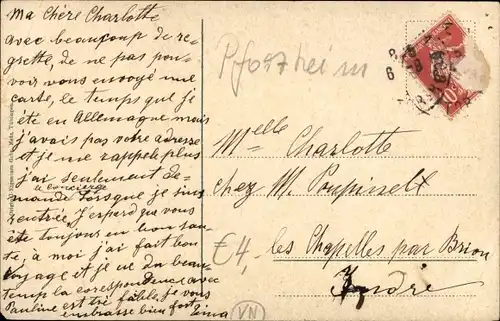 Ma Chère Charlotte
avec beaucoup de re-
grette, de ne pas pou-
voir vous envoyé une
carte, le temps que je
été en Allemagne mais
j'avais pas votre adresse
et je me rappele plus
j'ai seulement de-
a concierge
mandé lorsque je suis
rentrée, j'esperd que vous
ête toujours en bon san-
té, à moi j'ai fait bon
voyage et je ne du beau-
temp la corespondence avec
Pauline est tré faible, je vous
embrasse bien fort
Pforzheim
Melle Charlotte
chez M. Poupinel
les Chapelles par Brion
Indre
€4,-
VN
10c